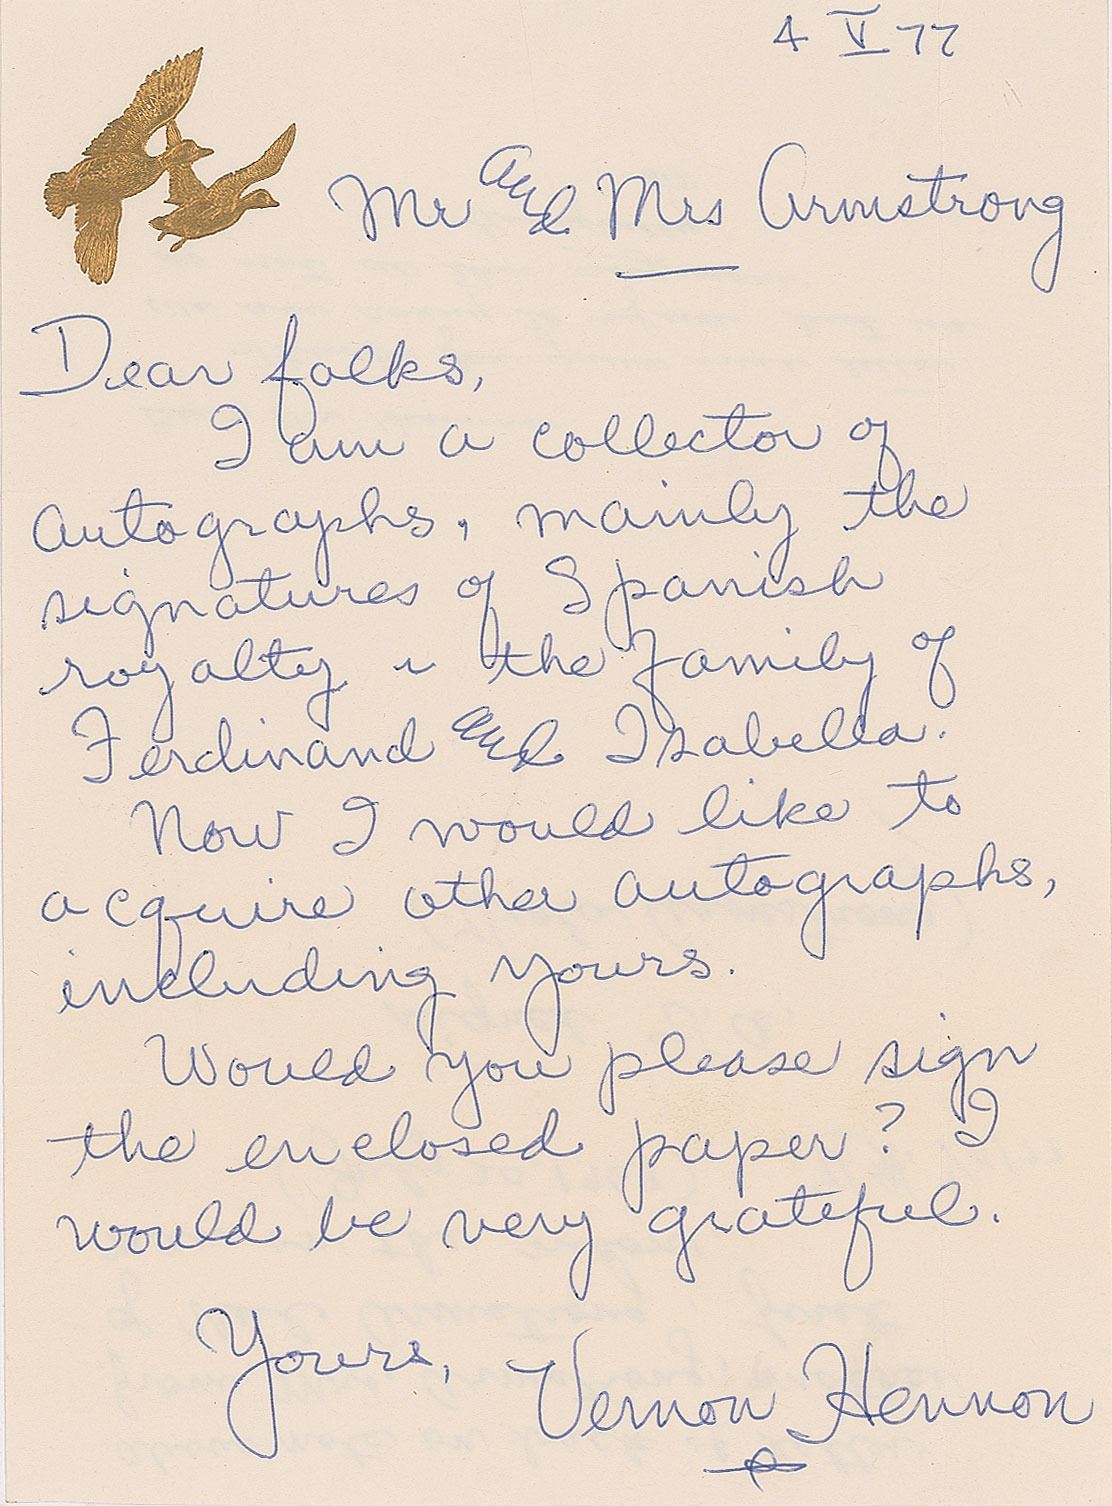 4 V 77
Mr and Mrs Armstrong
Dear folks,
I am a collector of
autographs, mainly the
signatures of Spanish
royalty in the family of
Ferdinand and Isabella.
Now I would like to
acquire other autographs,
including yours.
Would you please sign
the enclosed paper? I
would be very grateful.
Yours, Vernon Hennon